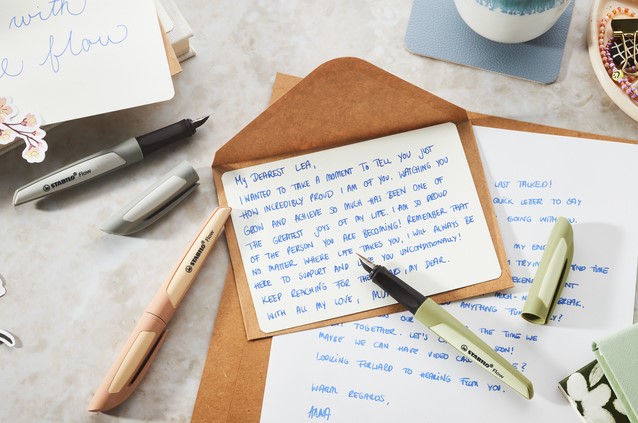 with
flow
STABILO Flow
STABILO Flow
MY DEAREST LEA,
I WANTED TO TAKE A MOMENT TO TELL YOU JUST
HOW INCREDIBLY PROUD I AM OF YOU. WATCHING YOU
GROW AND ACHIEVE SO MUCH HAS BEEN ONE OF
THE GREATEST JOYS OF MY LIFE. I AM SO PROUD
OF THE PERSON YOU ARE BECOMING! REMEMBER THAT
NO MATTER WHERE LIFE TAKES YOU, I WILL ALWAYS BE
HERE TO SUPPORT AND YOU UNCONDITIONALLY!
KEEP REACHING FOR MY DEAR.
WITH ALL MY LOVE,
LAST TALKED!
QUICK LETTER TO SAY
GOING WITH
MY
TIME
BREAK,
ANYTHING
OUR THE TIME WE
TOGETHER. LET'S
MAYBE WE CAN HAVE VIDEO SOON!
LOOKING FORWARD TO HEARING FROM YOU.
WARM REGARDS,
ANNA
STABILO Flow